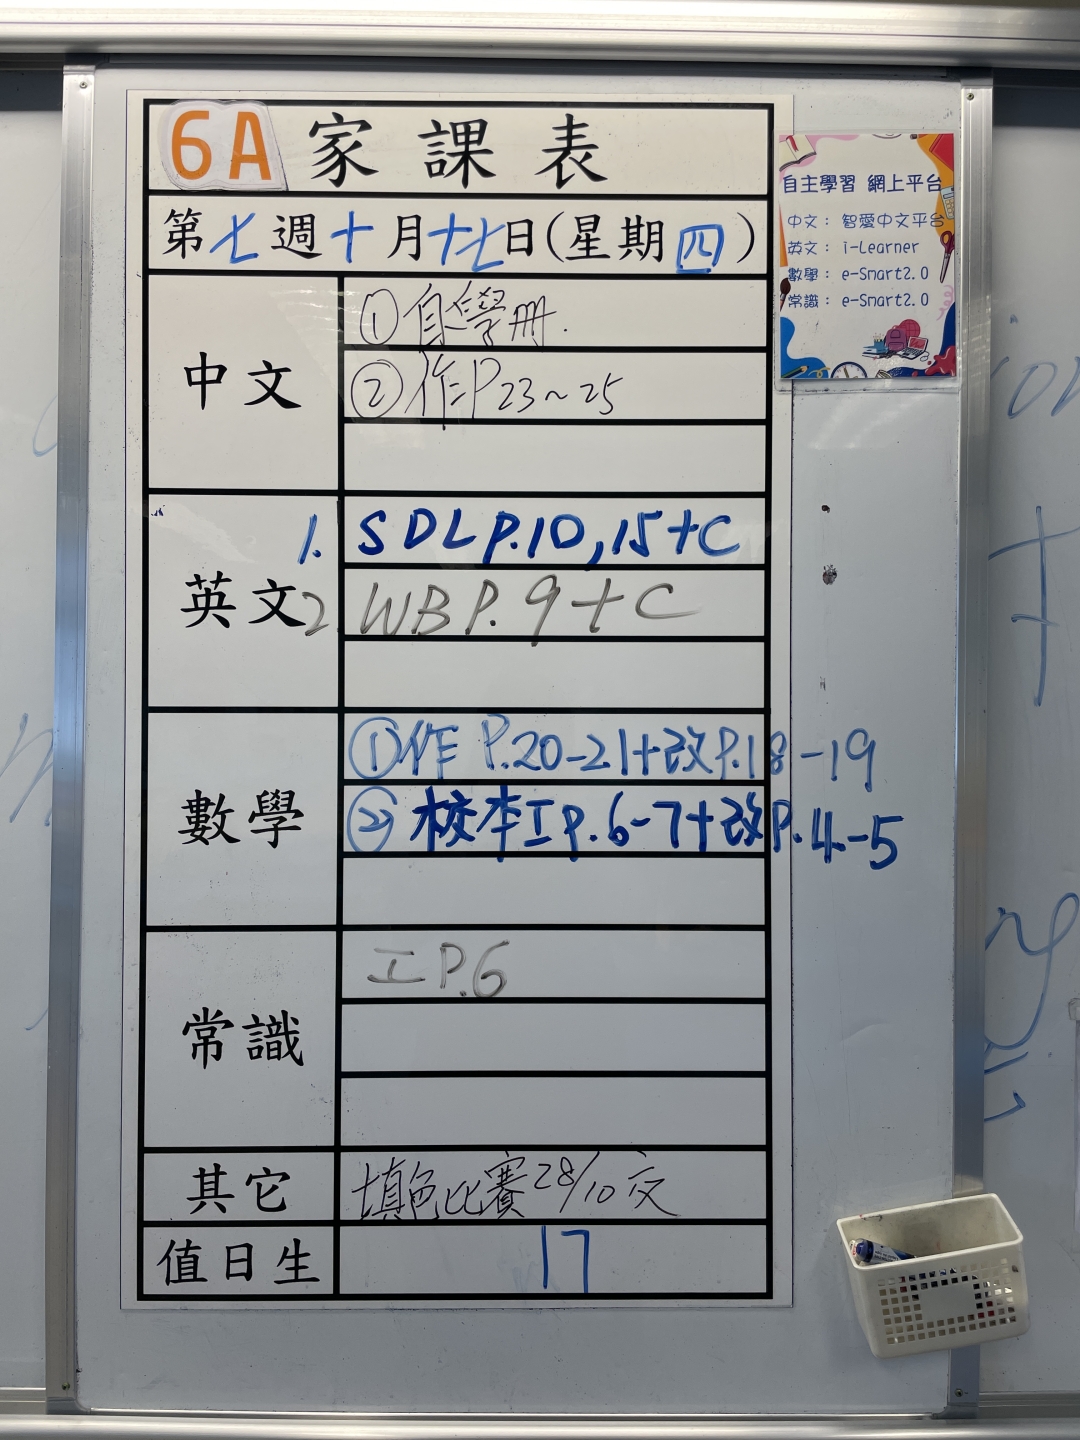 6A 家課表
第七週十月十七日(星期四)
中文
①自學冊.
②作P23~25
英文
1. SDL P.10,15+C
2. WB P.9+C
數學
①作 P.20-21+改P.18-19
② 校本工P.6-7+改P.4-5
常識
工P.6
其它
填色比賽28/10交
值日生
17
自主學習 網上平台
中文： 智愛中文平台
英文： i-Learner
數學： e-Smart2.0
常識： e-Smart2.0